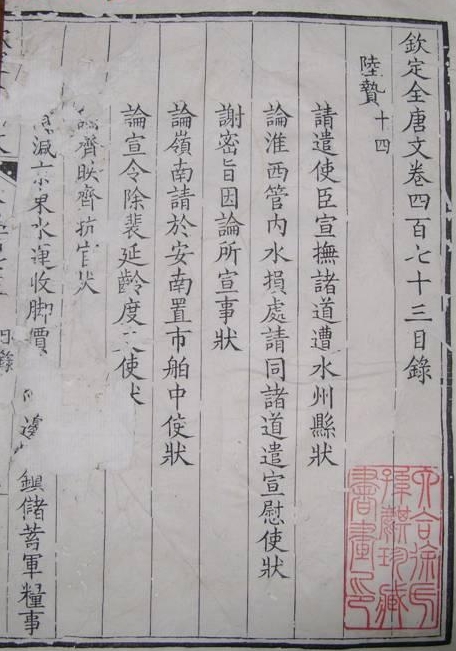 欽定全唐文卷四百七十三目錄
陸贄 十四
請遣使臣宣撫諸道遭水州縣狀
論淮西管內水損處請同諸道遣宣慰使狀
謝密旨因論所宣事狀
論嶺南請於安南置市舶中使狀
論宣令除裴延齡度使狀
齊映齊抗官狀
減京東水運收脚價邊鎮儲蓄軍糧事
六合徐氏
孫麒珍藏
書畫印